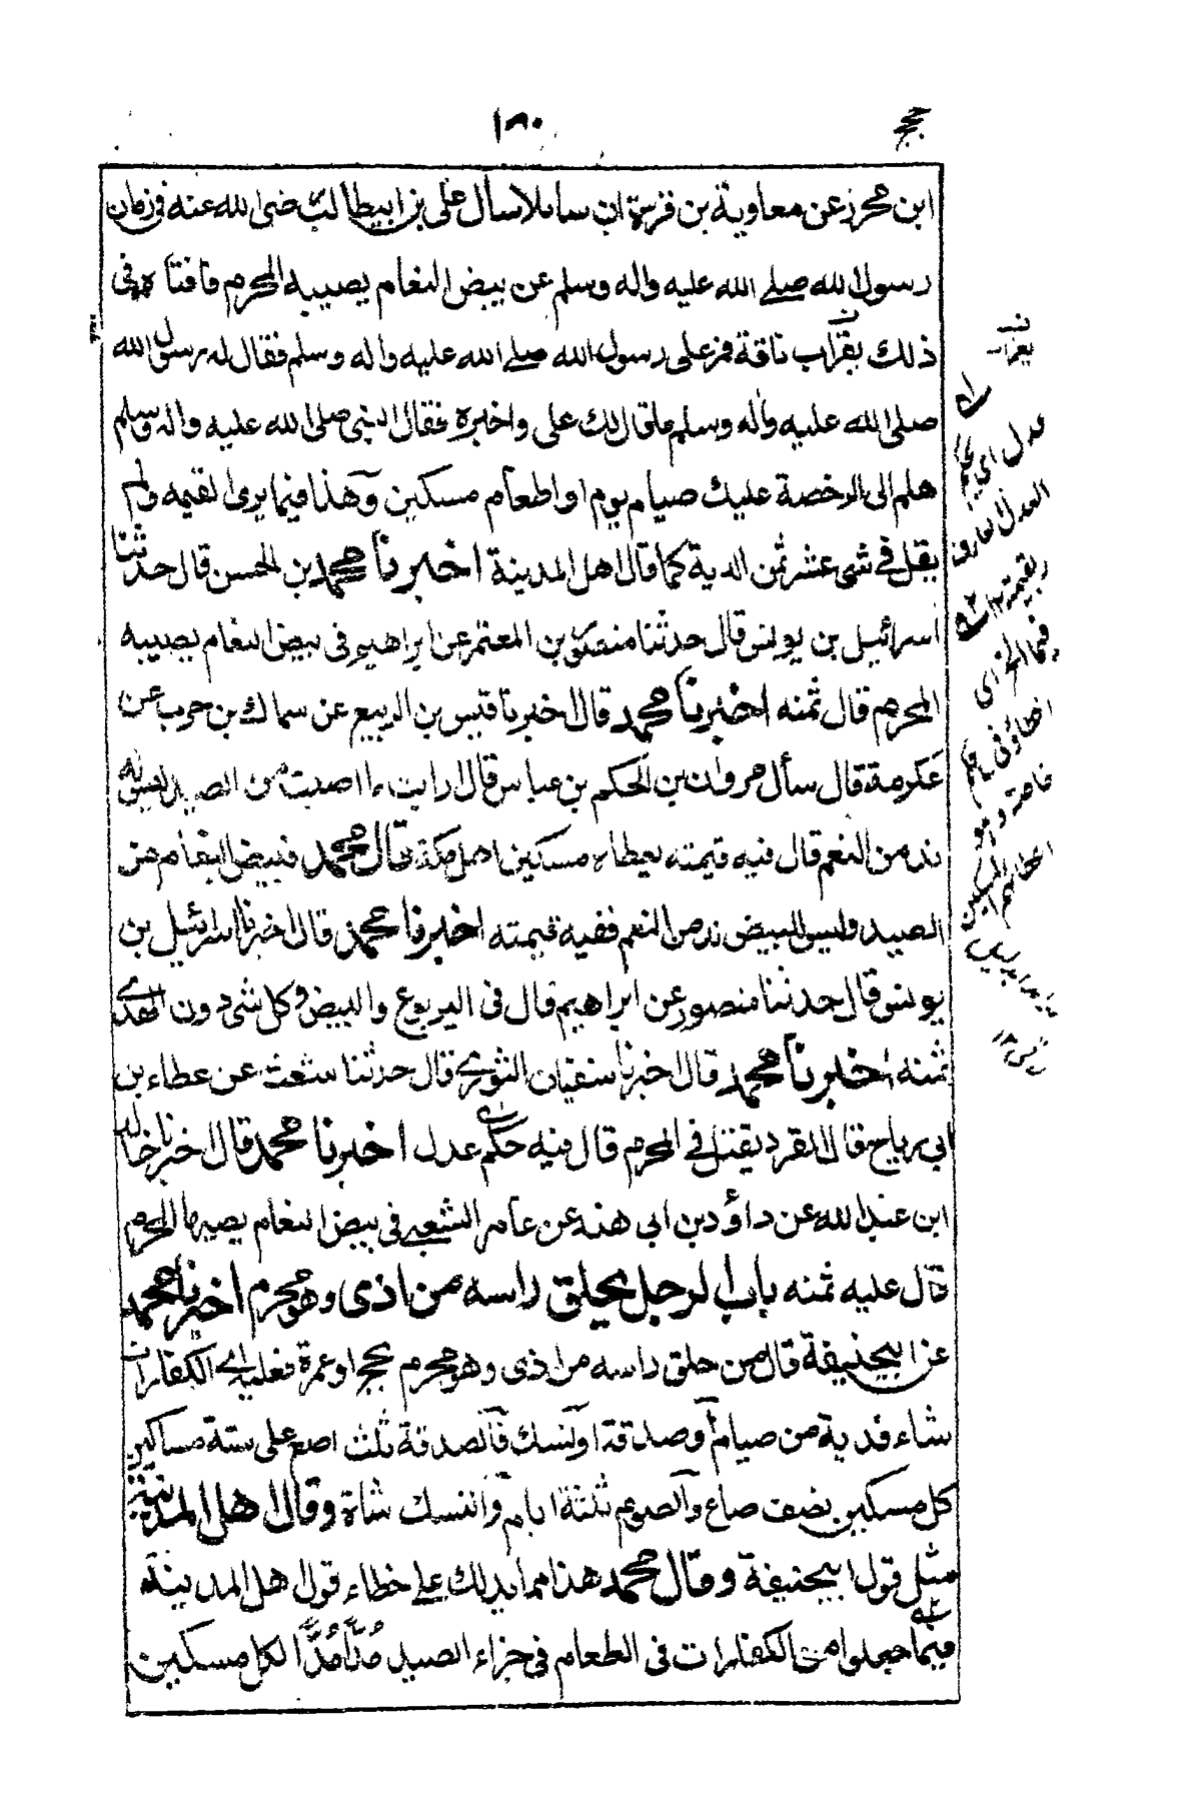 حج
١٨٠
ابن محرز عن معاوية بن قرة ان سائلا سأل على بن ابيطالب رضى الله عنه فى زمان
رسول الله صلے الله عليه واله وسلم عن بيض النعام يصيبه المحرم فافتاه فى
ذلك بقراب ناقة فمر على رسول الله صلے الله عليه واله وسلم فقال له رسول الله
صلى الله عليه واله وسلم ما قال لك على واخبره فقال النبى صلى الله عليه واله وسلم
هلم الى الرخصة عليك صيام يوم او اطعام مسكين وهذا فيما يرى القيمه ولم
يقل فى شى عشر ثمن الدية كما قال اهل المدينة اخبرنا محمد بن الحسن قال حدثنا
اسرائيل بن يونس قال حدثنا منصور بن المعتمر عن ابراهيم فى بيض النعام يصيبه
المحرم قال ثمنه اخبرنا محمد قال اخبرنا قيس بن الربيع عن سماك بن حرب عن
عكرمة قال سأل مروان بن الحكم بن عباس قال ارايت ما اصبت من الصيد ليس له
ند من النعم قال فيه قيمته يعطاه مساكين اهل مكة قال محمد فبيض النعام من
الصيد وليس للبيض ند من النعم ففيه قيمته اخبرنا محمد قال اخبرنا اسرائيل بن
يونس قال حدثنا منصور عن ابراهيم قال فى اليربوع والبيض وكل شى دون الهدى
ثمنه اخبرنا محمد قال اخبرنا سفيان الثورى قال حدثنا شعث عن عطاء بن
ابى رباح قال القرد يقتل فى المحرم قال فيه حكم عدل اخبرنا محمد قال اخبرنا خالد
ابن عبد الله عن داؤد بن ابى هند عن عامر الشعبے فى بيض النعام يصيبها المحرم
قال عليه ثمنه باب الرجل يحلق راسه من اذى وهو محرم اخبرنا محمد
عن ابيحنيفة قال من حلق راسه من اذى وهو محرم بحج او عمرة فعليه اى الكفارات
شاء فدية من صيام او صدقة او نسك فالصدقة ثلث اصع على ستة مساكين
كل مسكين نصف صاع والصوم ثلثة ايام والنسك شاة وقال اهل المدينة
مثل قول ابيحنيفة وقال محمد هذا مما يدلك على خطاء قول اهل المدينة
فيما جعلوا من الكفارات فى الطعام فى جزاء الصيد مُدًّا مُدًّا لكل مسكين
عدل اى
العدل العارف
بقيمته
فيما الخ اى